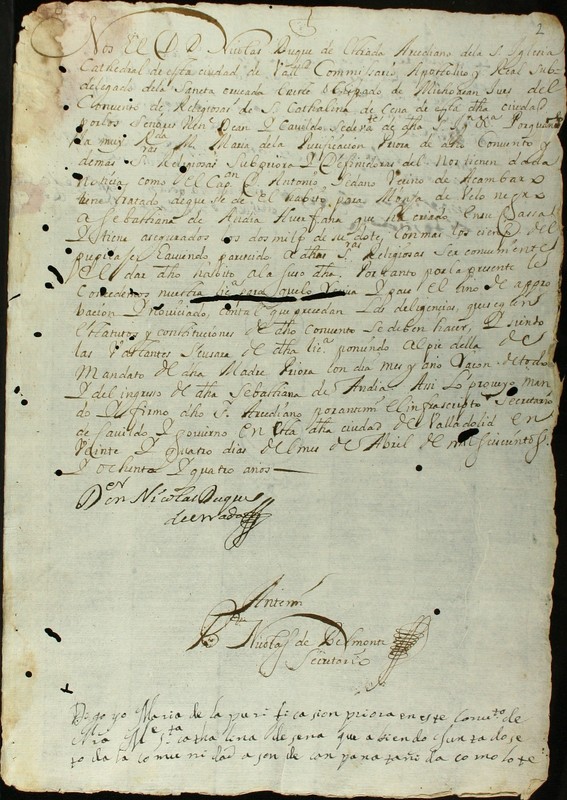 2
Nos El D. D. Nicolas Duque de Estrada Arcediano dela S. Iglesia
Cathedral de esta ciudad de Vall.d Commissario Apostolico y Real Sub
delegado dela Sancta cruzada en este Obispado de Michoacan Jues del
Convento de Religiosas de S. Cathalina de Cena de esta dha ciudad
por los Señores Ven. Dean y Cavildo Sedevac.te de dha S. Por quanto
la muy R.da M. Maria dela Purificacion Priora de dho Convento y
demas S. Religiosas Subpriora y Difinidoras del nos tienen dada
noticia como el Cap.n D. Antonio Sedano Vecino de Acambaro
tiene tratado de que se de el habito para Monja de Velo negro
a Sebastiana de Andia Huerfana que ha criado en su cassa
y tiene asegurados los dos mil p.s de su dote, con mas los cien p.s del
y aviendo parecido a dhas S.ras Religiosas ser conveniente
el dar dho habito ala suso dha. Por tanto por la presente le
Concedemos nuestra lic.a para que el año de apro
bacion y Noviciado, con tal que precedan las deligencias, que segun
estatutos y constituciones de dho Convento se deben hacer, y siendo
las Vastantes Ussara de dha lic.a poniendo al pie della de
Mandato de dha Madre Priora con dia mes y año raçon de todo
y del ingreso de dha Sebastiana de Andia Asi lo proveyo man
do y firmo dho S. Arcediano por ante mi el infrascripto Secretario
de Cavildo y govierno en esta dha ciudad de Valladolid en
Veinte y quatro dias del mes de Abril de mil seiscientos
y ochenta y quatro años
D.on Nicolas Duque
de estrada
Ante mi
Nicolas de Belmonte
Secretario
Digo yo Maria de la purificasion priora en este Conv.to de
N.ra M.e S.ta Catharina de sena que abiendo juntadose
toda la comunidad a son de campana tañida como lo te